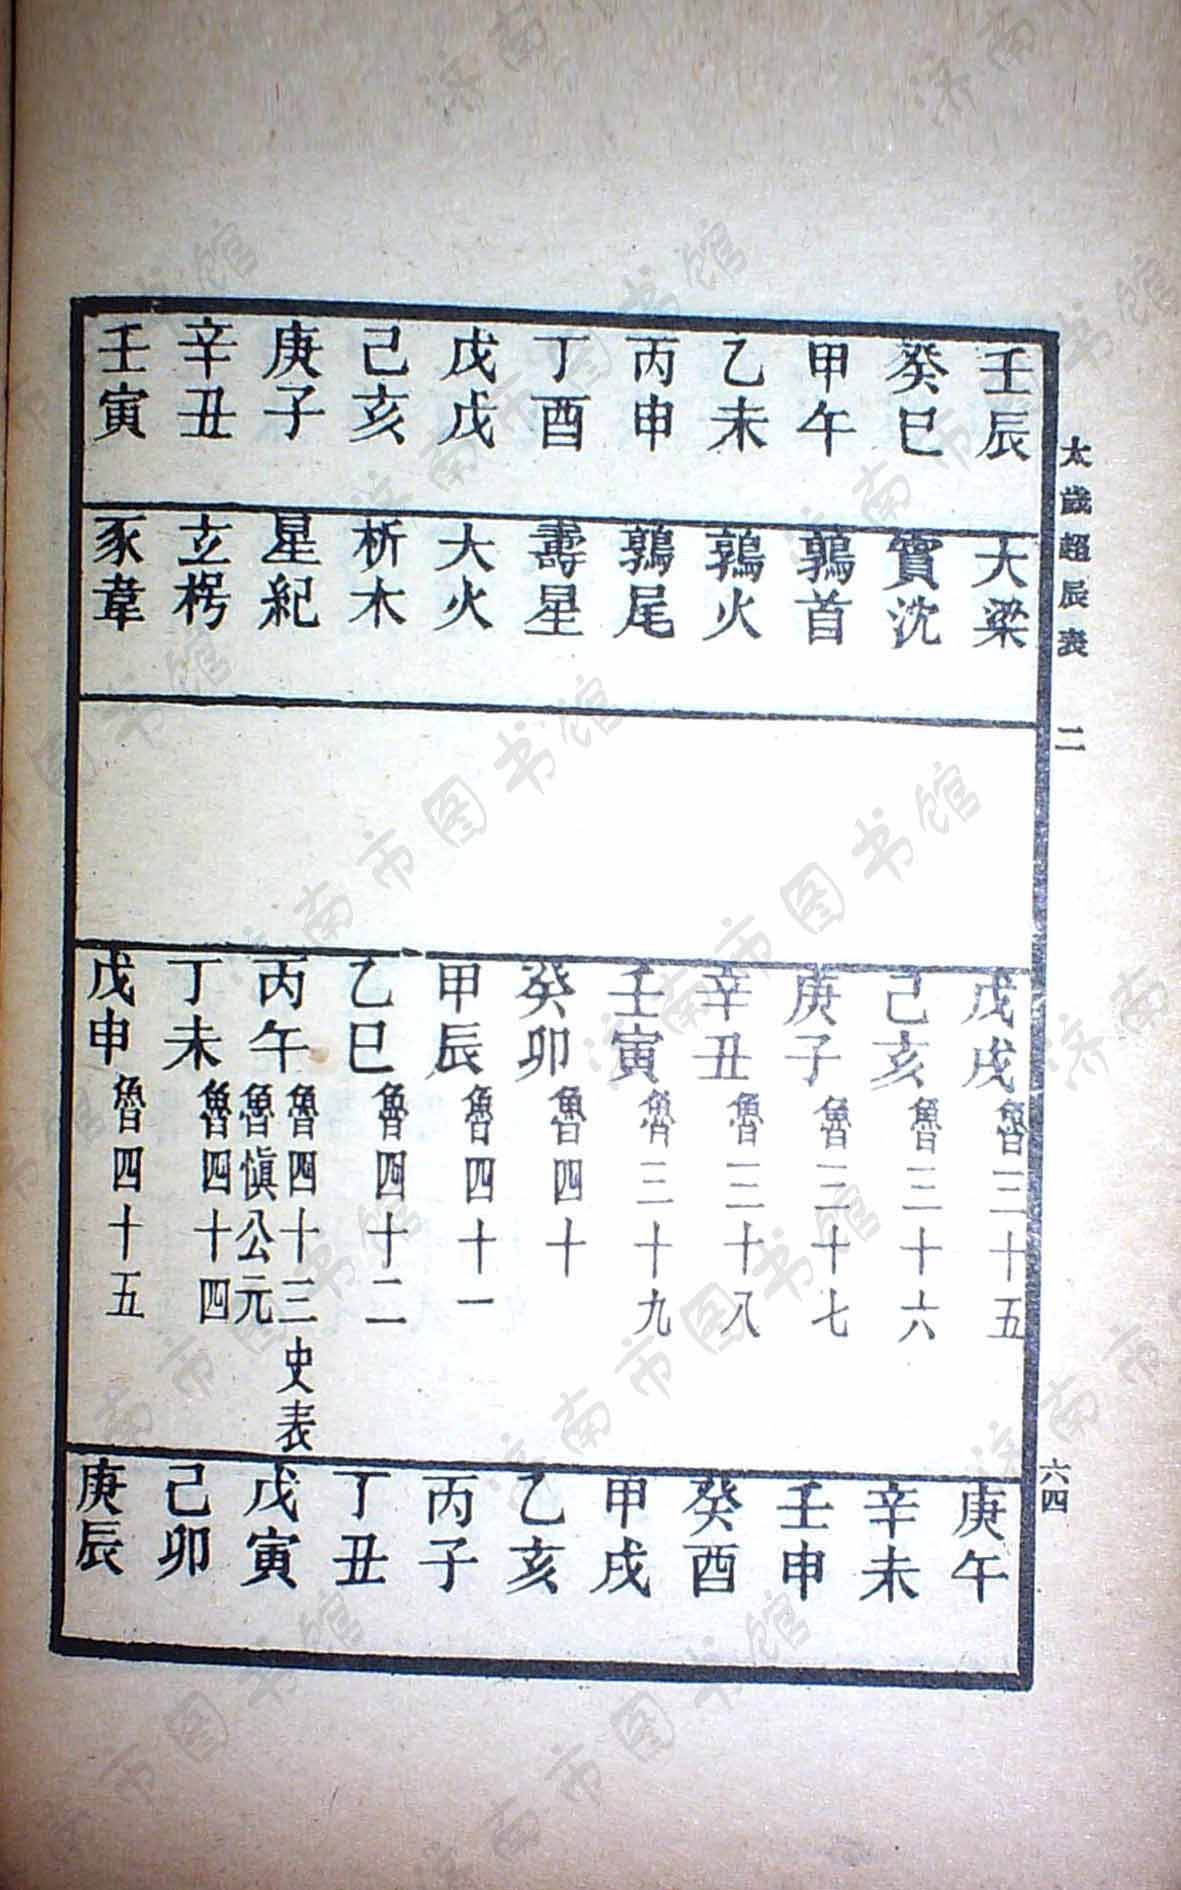 太歲超辰表 二 六四
壬辰 大梁 戊戌 魯三十五 庚午
癸巳 實沈 己亥 魯三十六 辛未
甲午 鶉首 庚子 魯三十七 壬申
乙未 鶉火 辛丑 魯三十八 癸酉
丙申 鶉尾 壬寅 魯三十九 甲戌
丁酉 壽星 癸卯 魯四十 乙亥
戊戌 大火 甲辰 魯四十一 丙子
己亥 析木 乙巳 魯四十二 丁丑
庚子 星紀 丙午 魯四十三史表魯愼公元 戊寅
辛丑 玄枵 丁未 魯四十四 己卯
壬寅 豕韋 戊申 魯四十五 庚辰
济南市图书馆